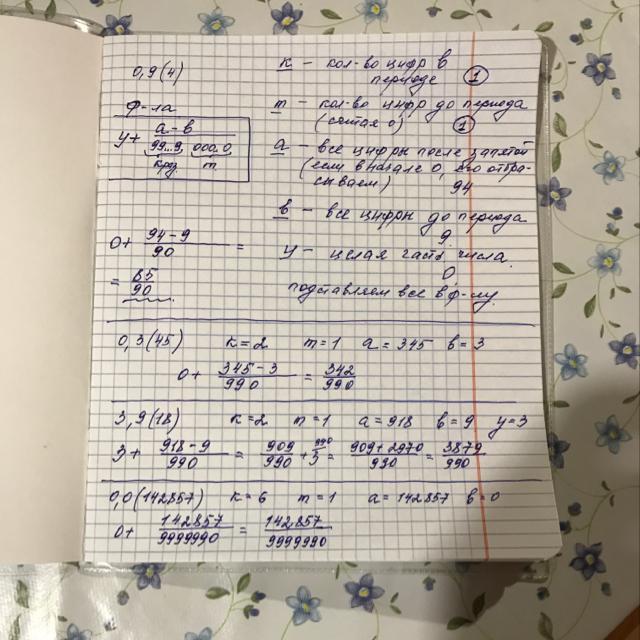 0,9(4)
к – кол-во цифр в
периоде 1
ф-ла
m – кол-во цифр до периода
(считая 0) 1
y + a-в / 99..9 000..0
к раз m
а – все цифры после запятой
(если в начале 0, его отбра-
сываем) 94
в – все цифры до периода
9
0 + 94-9 / 90 =
у – целая часть числа
0
= 85 / 90
подставляем все в ф-лу.
0,3(45) к=2 m=1 а=345 в=3
0 + 345-3 / 990 = 342 / 990
3,9(18) к=2 m=1 а=918 в=9 у=3
3 + 918-9 / 990 = 909 / 990 + 990 3 = 909+2970 / 990 = 3879 / 990
0,0(142857) к=6 m=1 а=142857 в=0
0 + 142857 / 9999990 = 142857 / 9999990